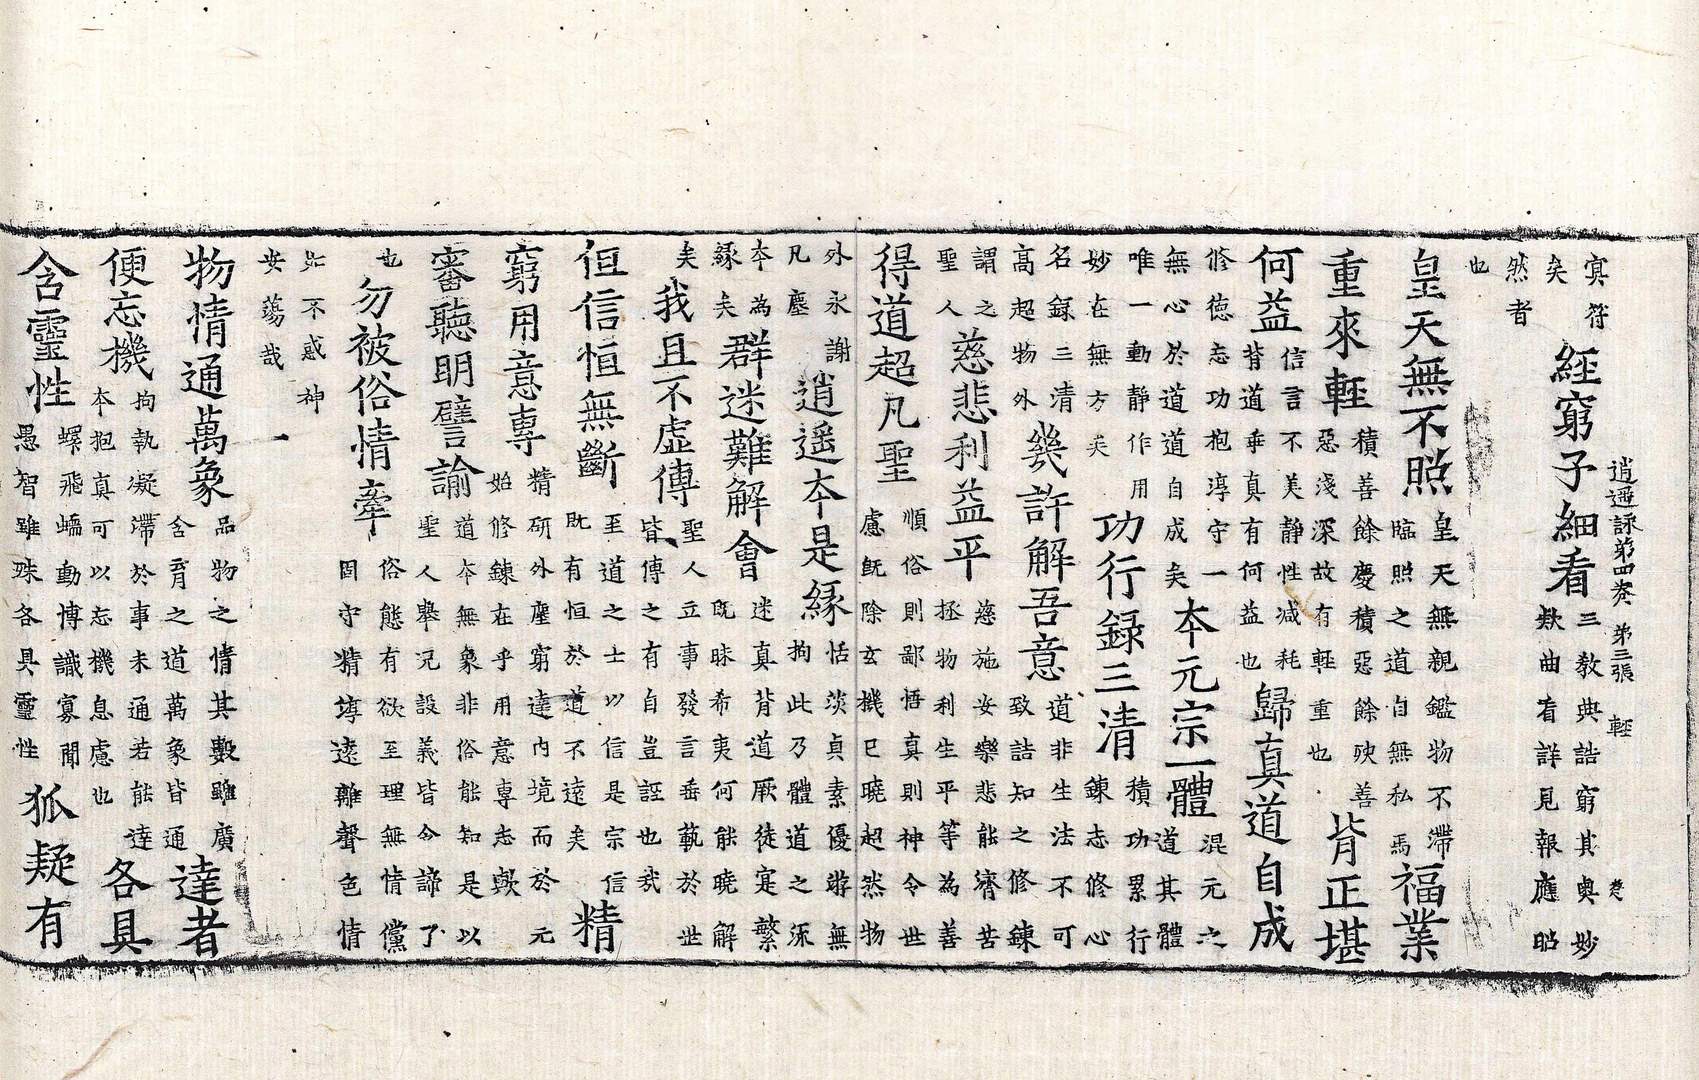 逍遥詠第四卷 第三張 輕 楚
㝠符
矣
經窮子細看
三教典誥窮其奥妙
欵曲看詳見報應昭
然者
也
皇天無不照
皇天無親鑑物不滯
臨照之道自無私焉
福業
重來輕
積善餘慶積惡餘殃善
惡淺深故有輕重也
背正堪
何益
信言不美静性减耗
背道乖真有何益也
歸真道自成
修德志功抱淳守一
無心於道道自成矣
本元宗一體
混元之
道其體
唯一動静作用
妙在無方矣
功行録三清
積功累行
鍊志修心
名録三清
高超物外
幾許解吾意
道非生法不可
致詰知之修鍊
謂之
聖人
慈悲利益平
慈施安樂悲能濟苦
拯物利生平等為善
得道超凡聖
順俗則鄙悟真則神今世
慮既除玄機已曉超然物
外永謝
凡塵
逍遥本是縁
恬淡貞素優游無
拘此乃體道之流
本為
縁矣
群迷難解會
迷真背道厥徒寔繁
既昧希夷何能曉解
矣
我且不虚傳
聖人立事發言垂範於世
皆傳之有自豈誑也我
但信恒無斷
至道之士以信是宗信
既有恒於道不遠矣
精
窮用意專
精研外塵窮達内境而於元
始修鍊在乎用意專志歟
審聽明譬諭
道本無象非俗能知是以
聖人舉况設義皆令諦了
也
勿被俗情牽
俗態有欲至理無情儻
固守精淳遠離聲色情
不惑神
安蕩哉
一
物情通萬象
品物之情其數雖廣
含育之道萬象皆通
達者
便忘機
拘執凝滯於事未通若能達
本抱真可以忘機息慮也
各具
含靈性
蠉飛蝡動博識寡聞
愚智雖殊各具靈性
狐疑有